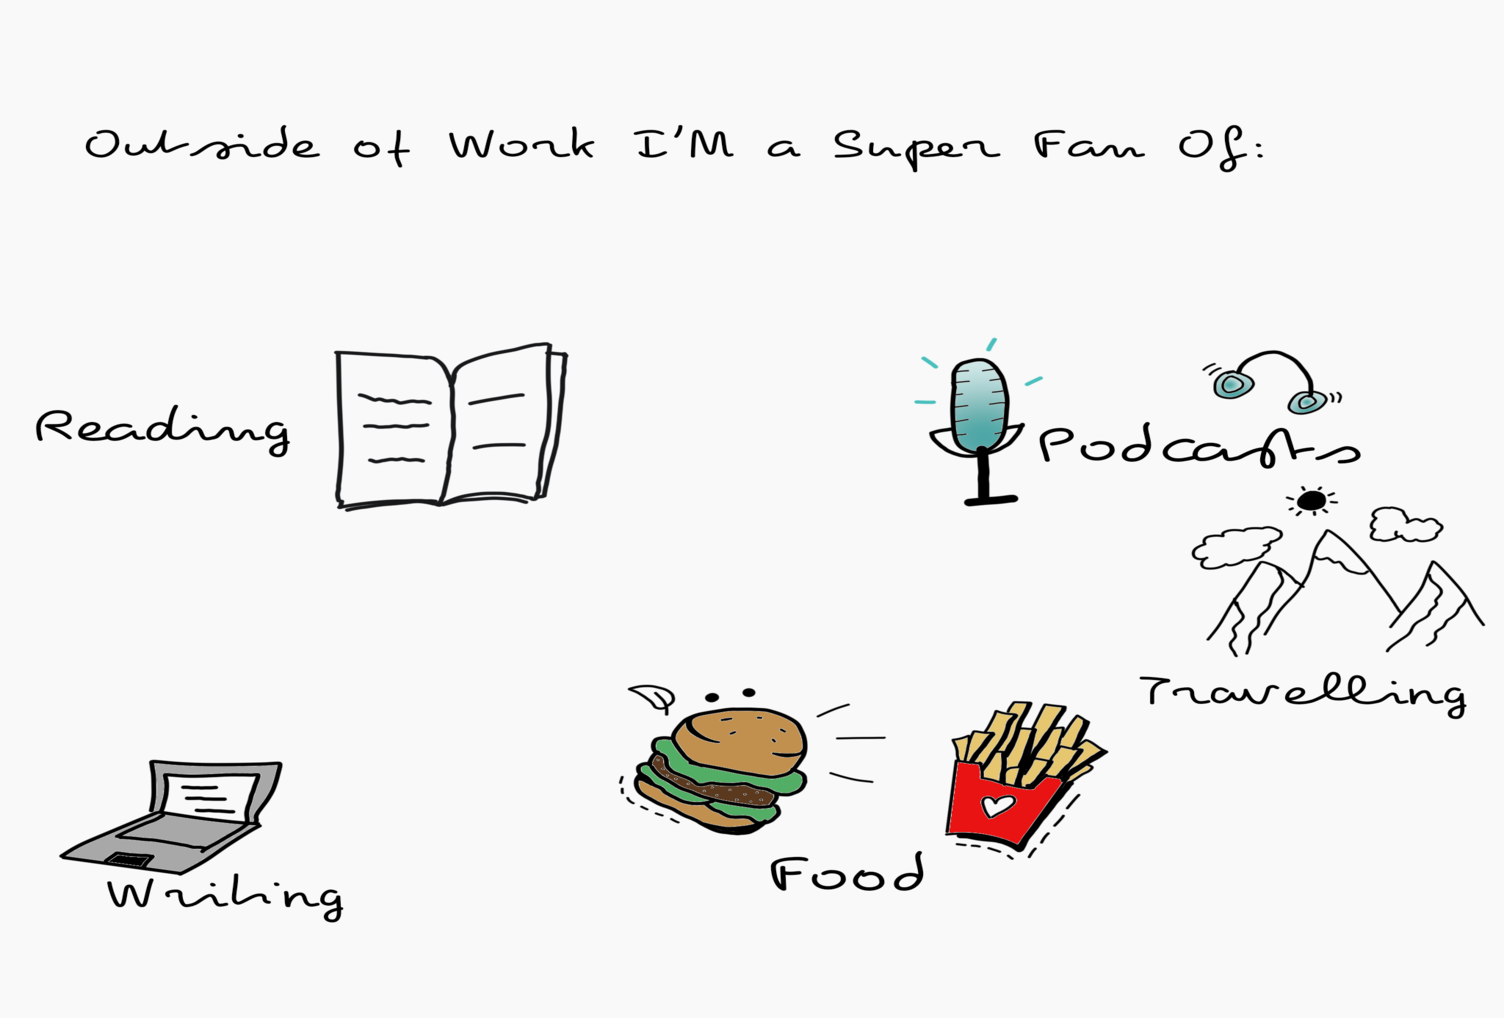 Outside of Work I'M a Super Fan Of:
Reading
Podcasts
Travelling
Writing
Food